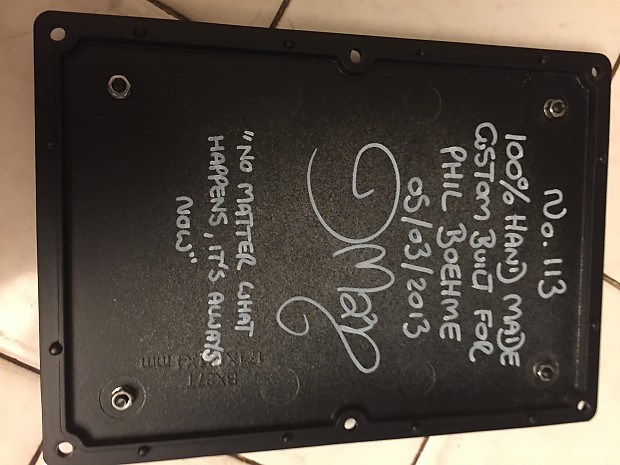 No. 113
100% HAND MADE
CUSTOM BUILT FOR
PHIL BOEHME
05/03/2013
"NO MATTER WHAT
HAPPENS, IT'S ALWAYS
NOW"